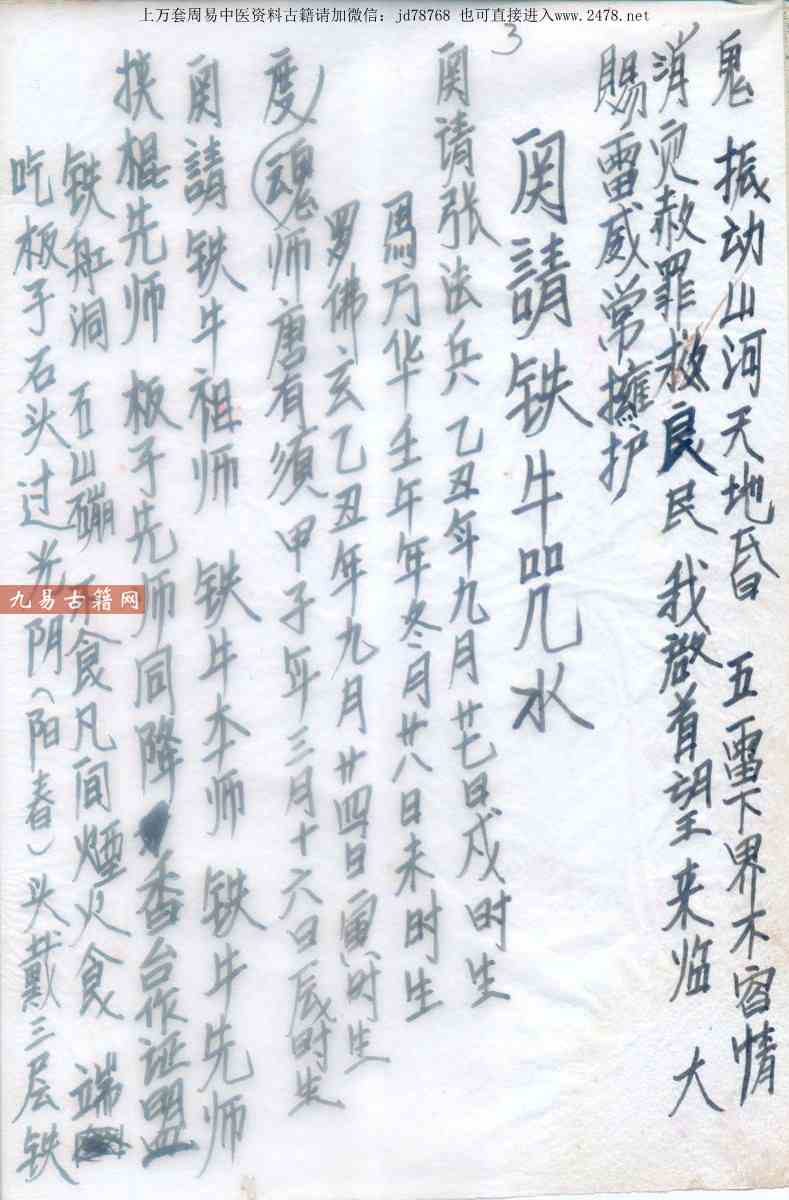 上万套周易中医资料古籍请加微信：jd78768 也可直接进入www.2478.net
鬼 振动山河天地昏 五雷下界不容情
消灾赦罪救良民 我啟首望来临 大
賜雷威常擁护
3
関請铁牛咒水
関请张法兵 乙丑年九月廿七日戌时生
馬万华壬午年冬月廿八日未时生
罗佛玄乙丑年九月廿四日寅时生
度（魂）师唐有須甲子年三月十六日辰时生
関請铁牛祖师 铁牛本师 铁牛先师
挟棍先师 板子先师同降 香台作证盟
铁缸洞 石山硼 不食凡间煙火食 端
吃板子石头过光阴（阳春）头戴三层铁
九易古籍网